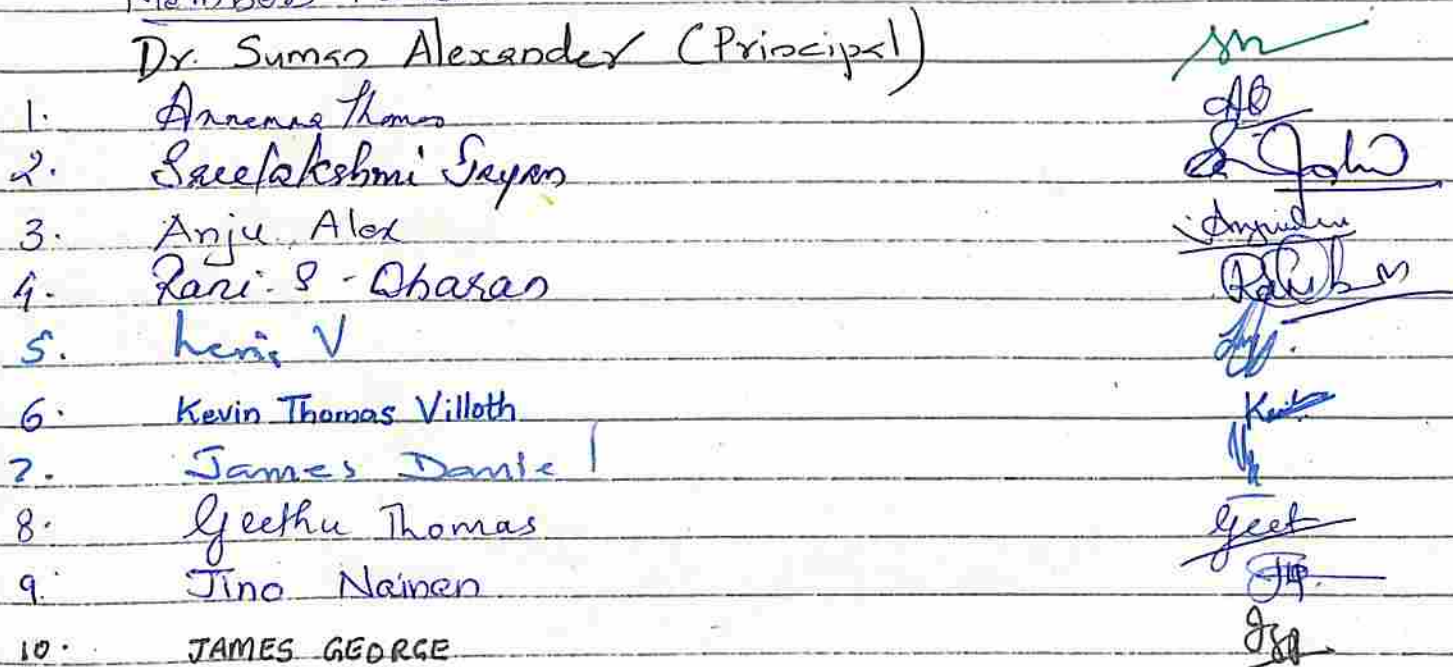 Dr. Suman Alexander (Principal)
1. Annamma Thomas
2. Sreelakshmi Jayan
3. Anju Alex
4. Rani. S. Dharan
5. V
6. Kevin Thomas Villoth
7. James Daniel
8. Geethu Thomas Geet
9. Jino Nainan
10. JAMES GEORGE